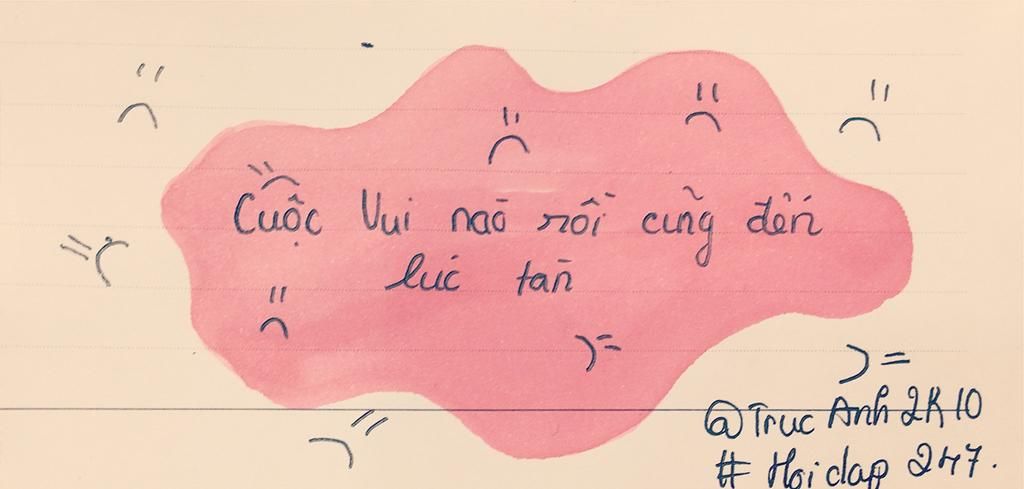 Cuộc Vui nào rồi cũng đến
lúc tàn
@Truc Anh 2K10
# Hoidap 247.